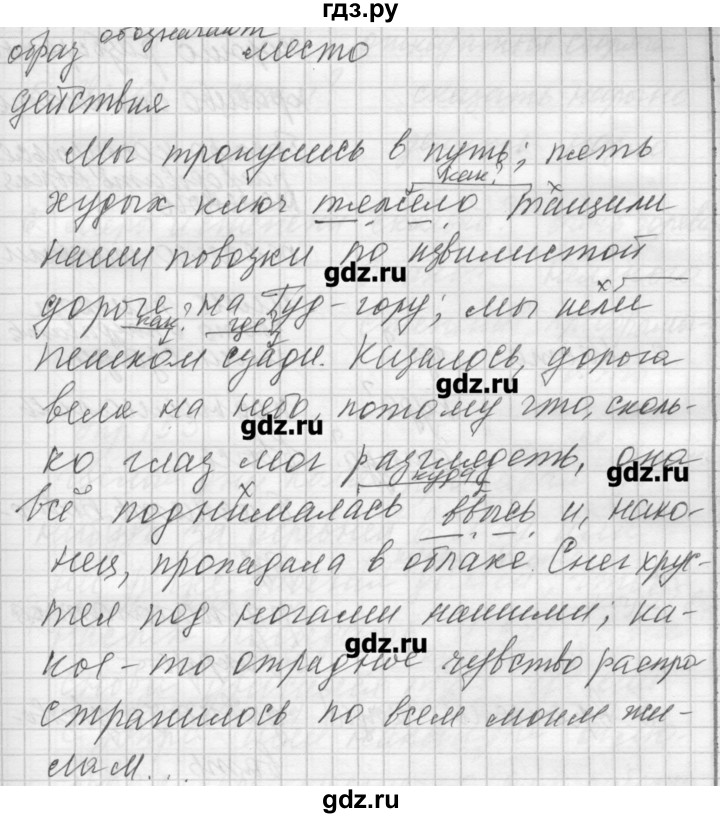 гдз.ру
обозначают
образ место
действия
Мы тронулись в путь; пять
как?
худых кляч тяжело тащили
наши повозки по извилистой
gdz.ru
дороге на Гуд-гору; мы шли
как? где?
пешком сзади. Казалось, дорога
gdz.ru
вела на небо, потому что, сколь-
gdz.ru
ко глаз мог разглядеть, она
gdz.ru
куда?
всё поднималась ввысь и, нако-
нец, пропадала в облаке. Снег хрус-
тел под ногами нашими; ка-
gdz.ru
кое-то отрадное чувство распро
странилось по всем моим жи-
лам...
gdz.ru